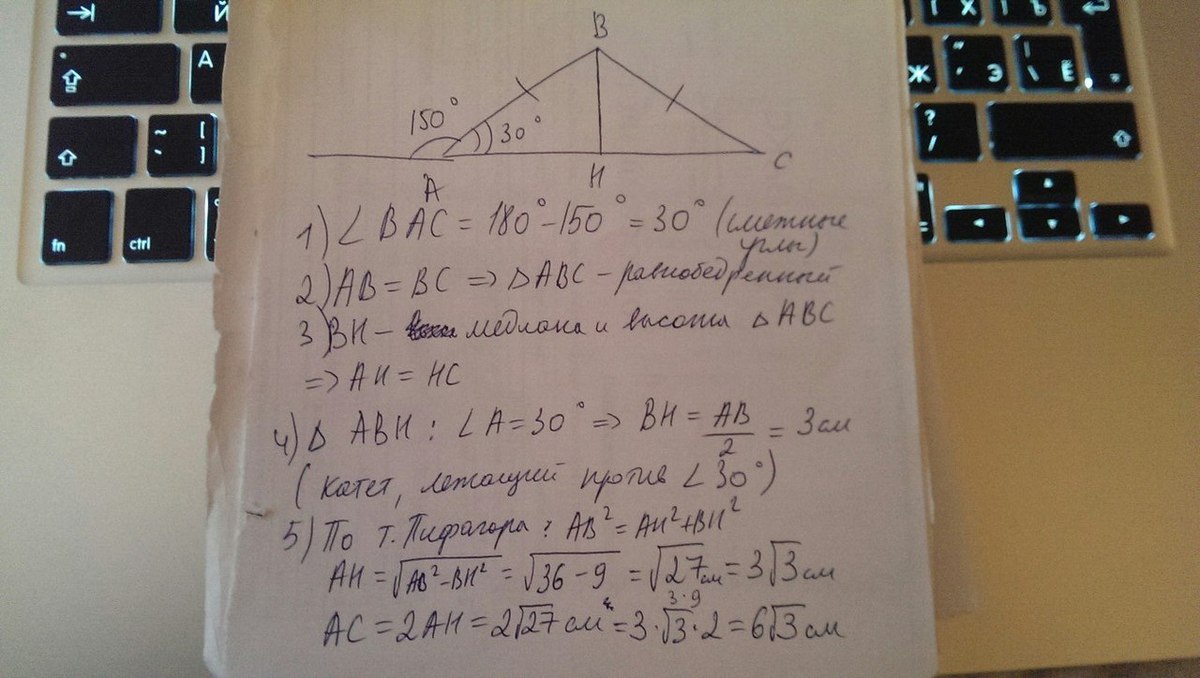 B
150°
30°
A
H
C
1) ∠BAC = 180° - 150° = 30° (смежные
углы)
2) AB = BC => △ABC - равнобедренный
3) BH - медиана и высота △ABC
=> AH = HC
4) △ ABH : ∠A = 30° => BH = AB/2 = 3 см
(катет, лежащий против ∠30°)
5) По т. Пифагора : AB² = AH² + BH²
AH = √(AB² - BH²) = √(36 - 9) = √27 см = 3√3 см
3·9
AC = 2AH = 2√27 см = 3·√3·2 = 6√3 см
й
А
~ [
` ]
fn
ctrl
Х
Ъ
Ж
Э
Ё
?
/